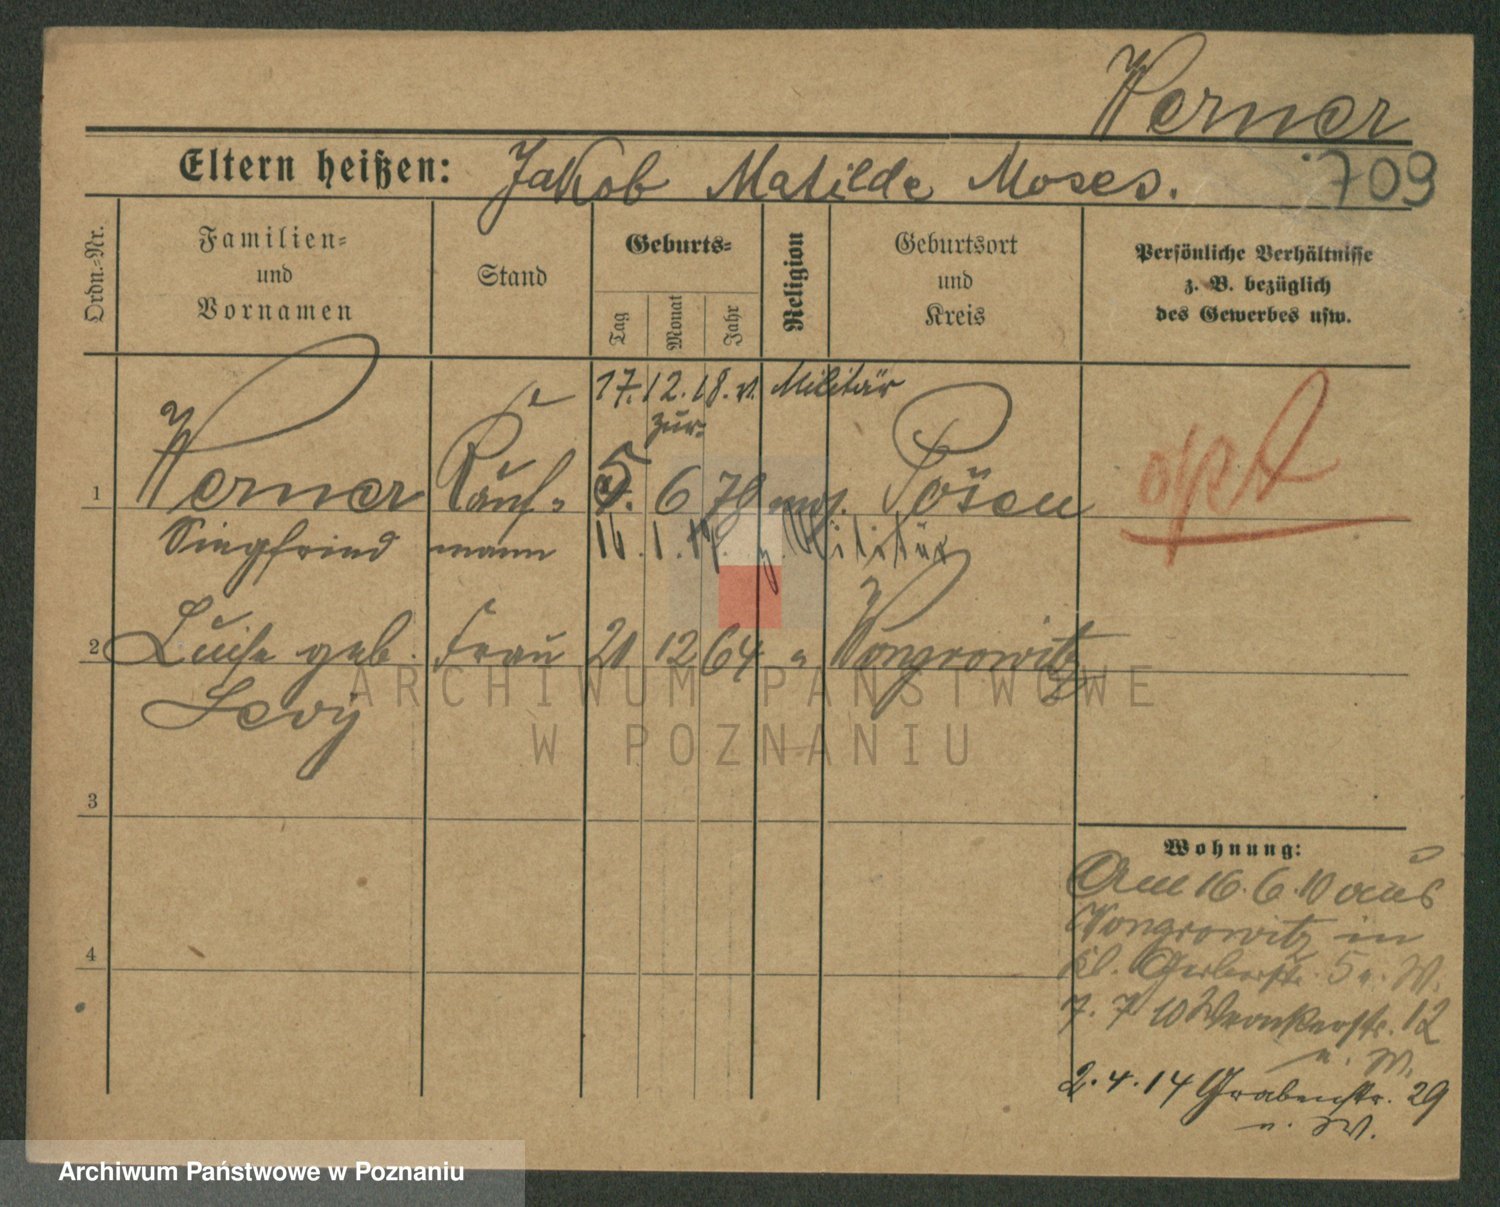 Werner
709
Eltern heißen: Jakob Matilde Moses.
Ordn.-Nr.
Familien- und Vornamen
Stand
Geburts-
Tag
Monat
Jahr
Religion
Geburtsort und Kreis
Persönliche Verhältnisse z. B. bezüglich des Gewerbes usw.
17.12.18. v. Militär
zur.
1 Werner Kauf= 5. 6 78 mos. Posen
Siegfried mann 16.1.17. z. Militär
2 Luise geb. Frau 21 12 64 " Wongrowitz
Levy
3
4
Wohnung:
Am 16.6.10 aus
Wongrowitz in
Kl. Gerberstr. 5 n. W.
7. 7 10 Wronkerstr. 12
n. W.
2.4.14 Grabenstr. 29
n. W.
ARCHIWUM PAŃSTWOWE
W POZNANIU
Archiwum Państwowe w Poznaniu